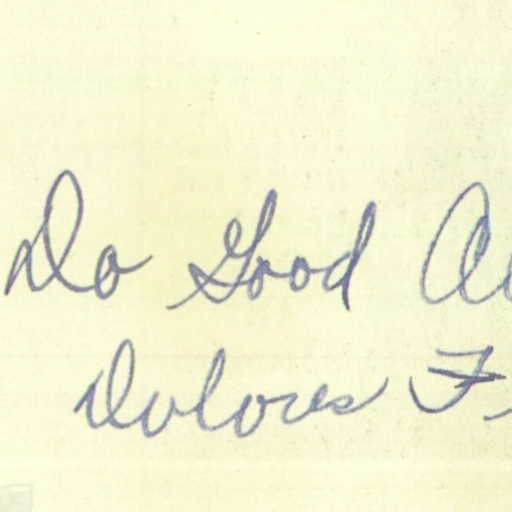 Do Good
Dolores F